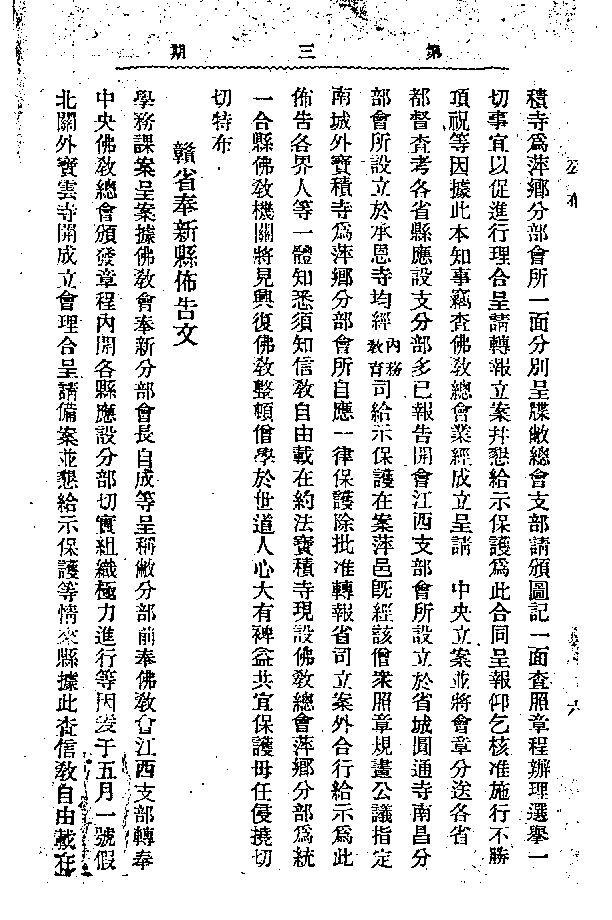 第三期
公布
積寺爲萍鄉分部會所一面分別呈牒敝總會支部請頒圖記一面查照章程辦理選舉一
切事宜以促進行理合呈請轉報立案幷懇給示保護爲此合同呈報仰乞核准施行不勝
頂祝等因據此本知事竊查佛敎總會業經成立呈請 中央立案並將會章分送各省
都督查考各省縣應設支分部多已報告開會江西支部會所設立於省城圓通寺南昌分
部會所設立於承恩寺均經內務敎育司給示保護在案萍邑旣經該僧衆照章規畫公議指定
南城外寶積寺爲萍鄉分部會所自應一律保護除批准轉報省司立案外合行給示爲此
佈告各界人等一體知悉須知信敎自由載在約法寶積寺現設佛敎總會萍鄉分部爲統
一合縣佛敎機關將見興復佛敎整頓僧學於世道人心大有裨益共宜保護毋任侵撓切
切特布
贛省奉新縣佈告文
學務課案呈案據佛敎會奉新分部會長自成等呈稱敝分部前奉佛敎會江西支部轉奉
中央佛敎總會頒發章程內開各縣應設分部切實組織極力進行等因爰于五月一號假
北關外寶雲寺開成立會理合呈請備案並懇給示保護等情來縣據此查信敎自由載在
六